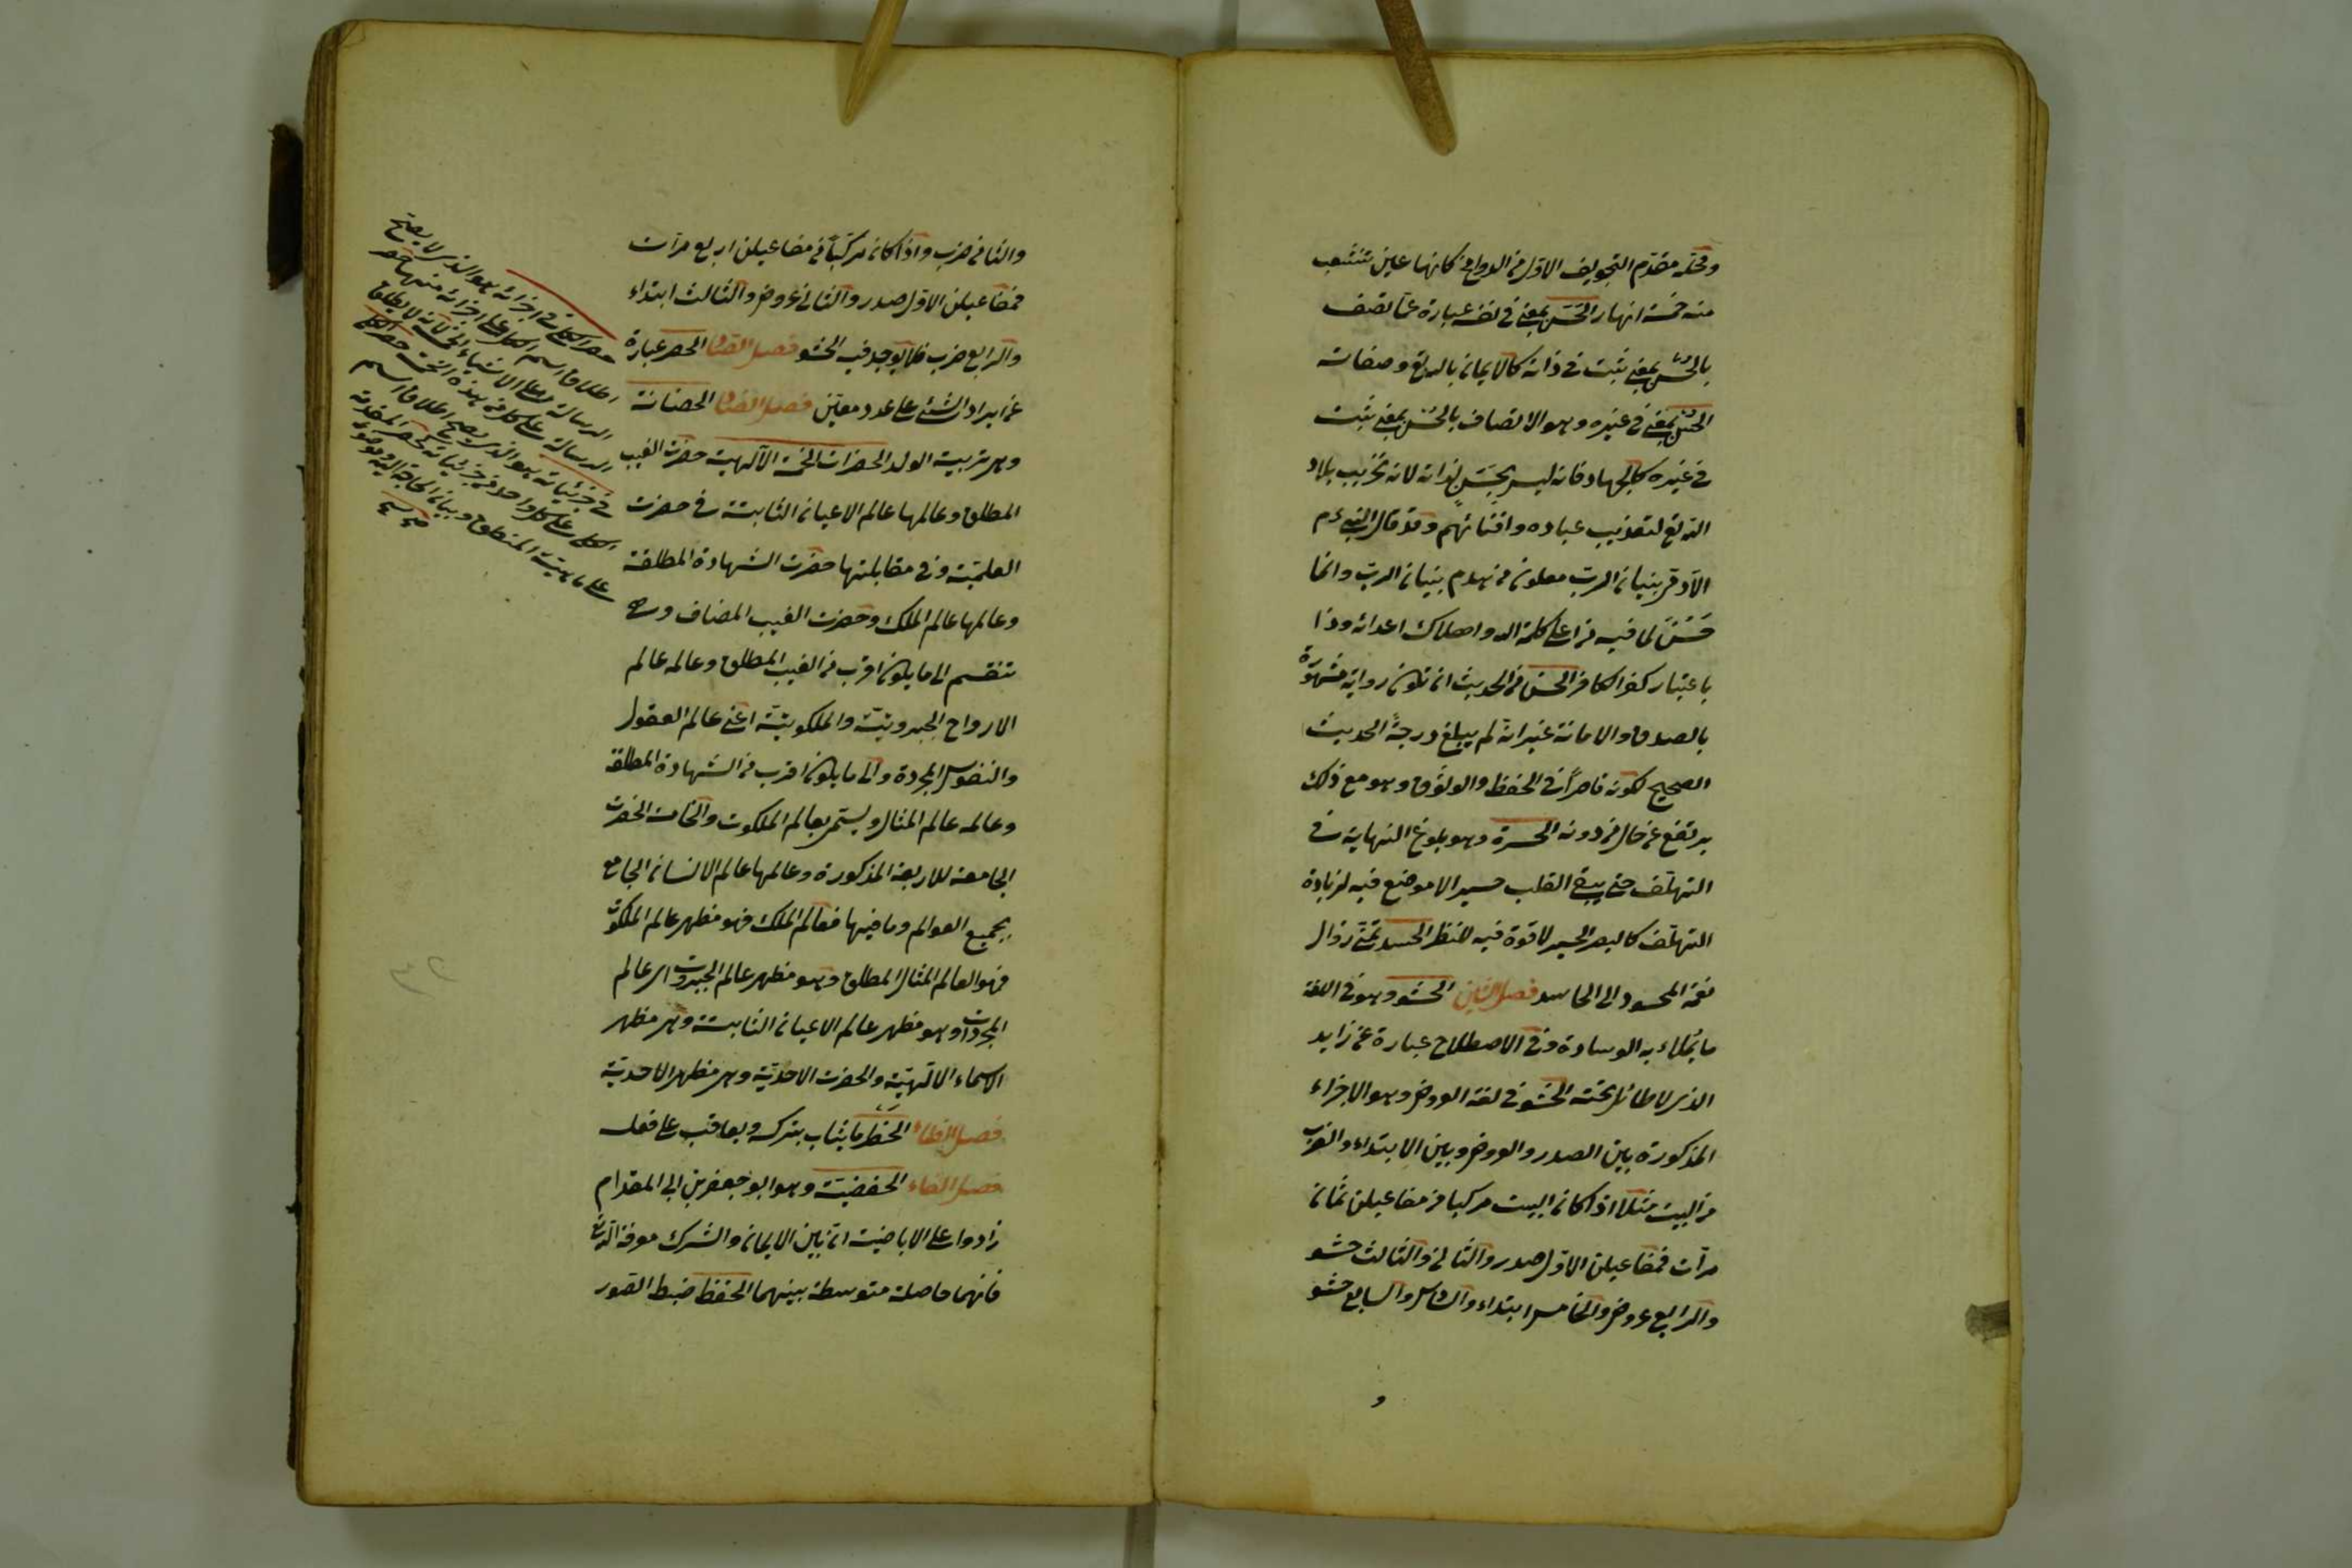 ومحله مقدم التجويف الاول من الدماغ كانها عين تنشعب
منه خمسة انهار الحسن بمعنى في نفسه عبارة عما تصف
بالحسن بمعنى ثبت في ذاته كالايمان بالله تع وصفاته
الحسن بمعنى في غيره وهو الاتصاف بالحسن بمعنى ثبت
في غيره كالجهاد فانه ليس بحسن لذاته لانه تخريب بلاد
الله تع وتعذيب عباده وافنائهم وقد قال النبي ءم
الآدمي بنيان الرب ملعون من هدم بنيان الرب وانما
حسن لما فيه من اعلاء كلمة الله واهلاك اعدائه وذا
باعتبار كفر الكافر الحسن من الحديث ان تكون رواية مشهورة
بالصدق والامانة غير انه لم يبلغ درجة الحديث
الصحيح لكونه قاصرا في الحفظ والوثوق وهو مع ذلك
يرتفع عن حال من دونه الحسرة وهو بلوغ النهاية في
التلهف حتى يبقى القلب حسيرا لا موضع فيه لزيادة
التلهف كالبصر الحسير لا قوة فيه للنظر الحسد تمني زوال
نعمة المحسود الى الحاسد فصل الشين الحشو وهو في اللغة
ما يملاء به الوسادة وفي الاصطلاح عبارة عن زايد
الذي لا طائل تحته الحشو في لغة العروض وهو الاجزاء
المذكورة بين الصدر والعروض وبين الابتداء والضرب
من البيت مثلا اذا كان البيت مركبا من مفاعيلن ثمان
مرات فمفاعيلن الاول صدر والثاني والثالث حشو
والرابع عروض والخامس ابتداء والسادس والسابع حشو
و
والثامن ضرب واذا كان مركبا من مفاعيلن اربع مرات
فمفاعيلن الاول صدر والثاني عروض والثالث ابتداء
والرابع ضرب فلا يوجد فيه الحشو فصل الصاد الحصر عبارة
عن ايراد الشئ على عدد معين فصل الضاد الحضانة
وهي تربية الولد الحضرات الخمسة الآلهية حضرت الغيب
المطلق وعالمها عالم الاعيان الثابتة في حضرت
العلمية وفي مقابلتها حضرت الشهادة المطلقة
وعالمها عالم الملك وحضرت الغيب المضاف وهي
تنقسم الى ما يكون اقرب من الغيب المطلق وعالمه عالم
الارواح الجبروتية والملكوتية اعني عالم العقول
والنفوس المجردة والى ما يكون اقرب من الشهادة المطلقة
وعالمه عالم المثال ويسمى بعالم الملكوت والخامسة الحضرت
الجامعة للاربعة المذكورة وعالمها عالم الانسان الجامع
بجميع العوالم وما فيها فعالم الملك فهو مظهر عالم الملكوت
فهو العالم المثال المطلق وهو مظهر عالم الجبروت اي عالم
المجردات وهو مظهر عالم الاعيان الثابتة وهي مظهر
الاسماء الالهية والحضرت الاحدية وهي مظهر الاحدية
فصل الظاء الحظر ما يثاب بتركه ويعاقب على فعله
فصل الفاء الحفضية وهو ابو جعفر بن ابي المقدام
زادوا على الاباضية ان بين الايمان والشرك معرفة الله تع
فانهما حاصلة متوسطة بينهما الحفظ ضبط الصور
حصر الكل في اجزائه هو الذي لا يصح
اطلاق اسم الكل على اجزائه منها حصر
الرسالة على الاشياء الخمسة لانه لا يطلق
الرسالة على كل من هذه الخمسة حصر الكلي
في جزئياته هو الذي يصح اطلاق اسم
الكلي على كل واحد من جزئياته كحصر المقدمة
على ماهية المنطق وبيان الحاجة اليه وموضوعه